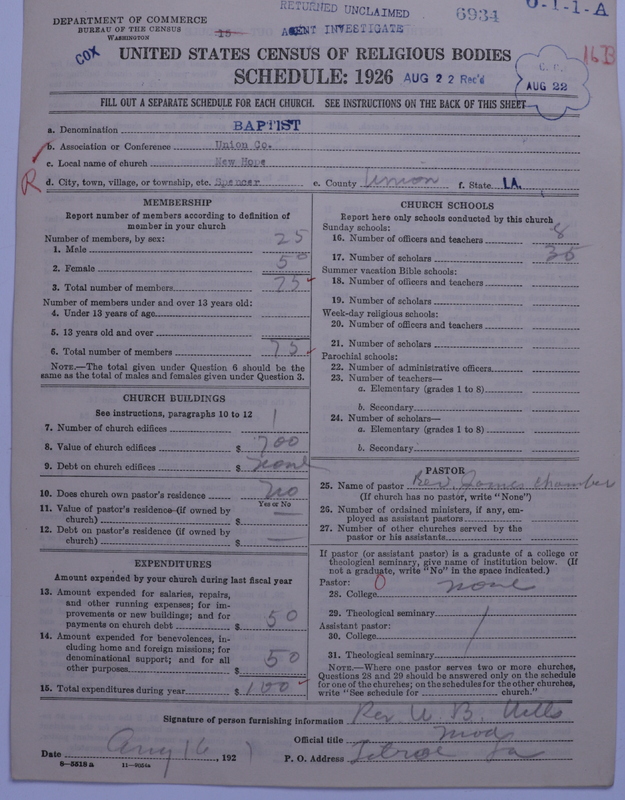 RETURNED UNCLAIMED
6934
0-1-1-A
DEPARTMENT OF COMMERCE
BUREAU OF THE CENSUS
WASHINGTON
15
AGENT INVESTIGATE
COX
16B
UNITED STATES CENSUS OF RELIGIOUS BODIES
SCHEDULE: 1926 AUG 22 Rec'd
AUG 22
FILL OUT A SEPARATE SCHEDULE FOR EACH CHURCH. SEE INSTRUCTIONS ON THE BACK OF THIS SHEET
a. Denomination BAPTIST
b. Association or Conference Union Co.
c. Local name of church New Hope
R
d. City, town, village, or township, etc. Spencer e. County Union f. State LA.
MEMBERSHIP
Report number of members according to definition of
member in your church
Number of members, by sex:
1. Male 25
2. Female 50
3. Total number of members 75
Number of members under and over 13 years old:
4. Under 13 years of age
5. 13 years old and over
6. Total number of members 75
NOTE.—The total given under Question 6 should be the
same as the total of males and females given under Question 3.
CHURCH BUILDINGS
See instructions, paragraphs 10 to 12
7. Number of church edifices 1
8. Value of church edifices $ 700
9. Debt on church edifices $ none
10. Does church own pastor's residence no
Yes or No
11. Value of pastor's residence (if owned by
church) $ —
12. Debt on pastor's residence (if owned by
church) $ —
EXPENDITURES
Amount expended by your church during last fiscal year
13. Amount expended for salaries, repairs,
and other running expenses; for im-
provements or new buildings; and for
payments on church debt $ 50
14. Amount expended for benevolences, in-
cluding home and foreign missions; for
denominational support; and for all
other purposes $ 50
15. Total expenditures during year $ 100
CHURCH SCHOOLS
Report here only schools conducted by this church
Sunday schools:
16. Number of officers and teachers 8
17. Number of scholars 35
Summer vacation Bible schools:
18. Number of officers and teachers
19. Number of scholars
Week-day religious schools:
20. Number of officers and teachers
21. Number of scholars
Parochial schools:
22. Number of administrative officers
23. Number of teachers—
a. Elementary (grades 1 to 8)
b. Secondary
24. Number of scholars—
a. Elementary (grades 1 to 8)
b. Secondary
PASTOR
25. Name of pastor Rev James Chamber
(If church has no pastor, write "None")
26. Number of ordained ministers, if any, em-
ployed as assistant pastors
27. Number of other churches served by the
pastor or his assistants
If pastor (or assistant pastor) is a graduate of a college or
theological seminary, give name of institution below. (If
not a graduate, write "No" in the space indicated.)
Pastor: 0
28. College none
29. Theological seminary
Assistant pastor:
30. College
31. Theological seminary
NOTE.—Where one pastor serves two or more churches,
Questions 28 and 29 should be answered only on the schedule
for one of the churches; on the schedules for the other churches,
write "See schedule for church."
Signature of person furnishing information Rev W. B.
Official title Mod
Date Aug 16, 192 P. O. Address La
8-5518a 11-9054a